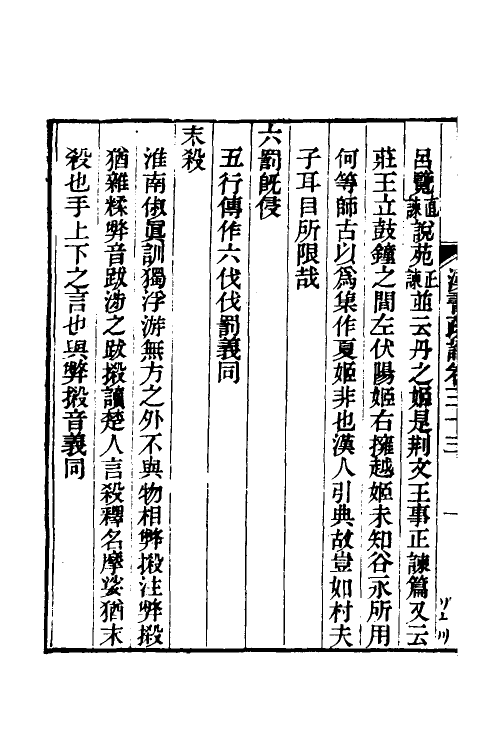 呂覽直諫說苑正諫並云丹之姬是荆文王事正諫篇又云
莊王立鼓鐘之間左伏陽姬右擁越姬未知谷永所用
何等師古以爲集作夏姬非也漢人引典故豈如村夫
子耳目所限哉
六罰旣侵
五行傳作六伐伐罰義同
末殺
淮南俶眞訓獨浮游無方之外不與物相弊摋注弊摋
猶雜糅弊音跋涉之跋摋讀楚人言殺釋名摩娑猶末
殺也手上下之言也與弊摋音義同
漢書疏證卷三十三